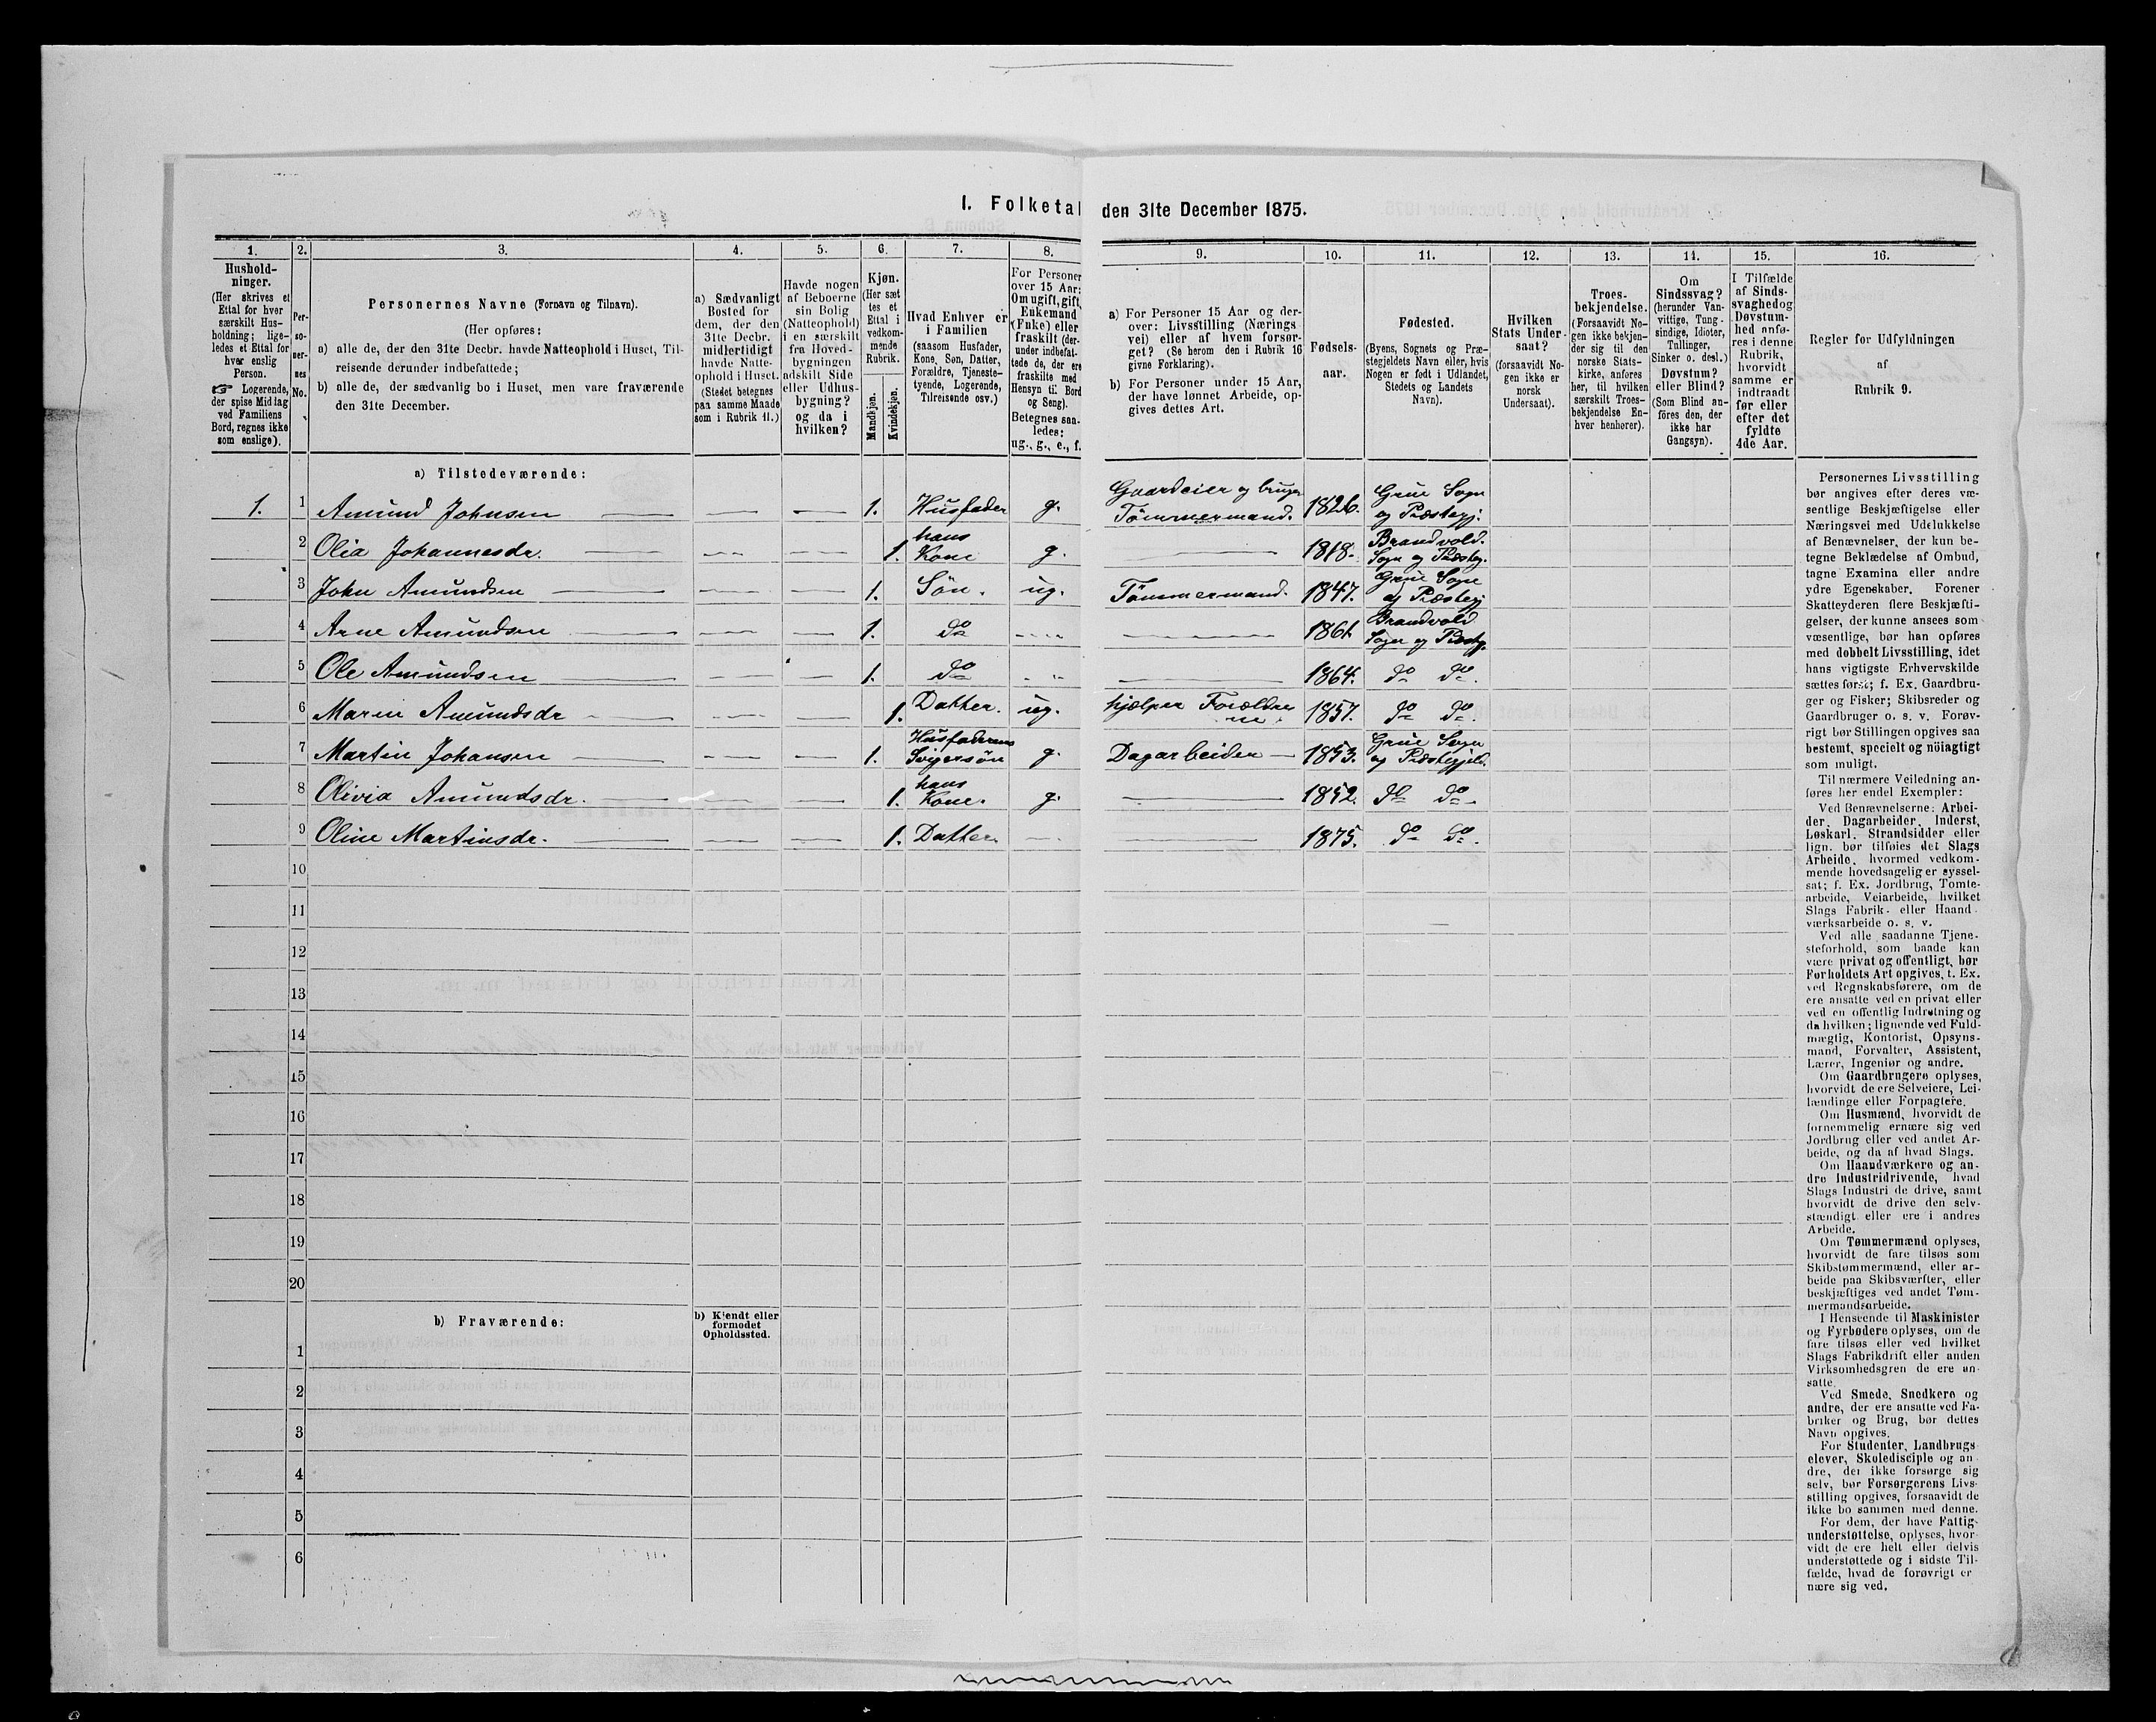 I. Folketal den 31te December 1875.
1.
2.
3.
4.
5.
6.
7.
8.
9.
10.
11.
12.
13.
14.
15.
16.
Hushold-
ninger.
(Her skrives et
Ettal for hver
særskilt Hus-
holdning; lige-
ledes et Ettal for
hver enslig
Person.
☞ Logerende,
der spise Middag
ved Familiens
Bord, regnes ikke
som enslige).
Per-
so-
ner-
nes
No.
Personernes Navne (Fornavn og Tilnavn).
(Her opføres:
a) alle de, der den 31te Decbr. havde Natteophold i Huset, Til-
reisende derunder indbefattede;
b) alle de, der sædvanlig bo i Huset, men vare fraværende
den 31te December.
a) Sædvanligt
Bosted for
dem, der den
31te Decbr.
midlertidigt
havde Natte-
ophold i Huset.
(Stedet betegnes
paa samme Maade
som i Rubrik 11.)
Havde nogen
af Beboerne
sin Bolig
(Natteophold)
i en særskilt
fra Hoved-
bygningen
adskilt Side
eller Udhus-
bygning?
og da i
hvilken?
Kjøn.
(Her sæt
tes et
Ettal i
vedkom-
mende
Rubrik.
Mandkjøn.
Kvindekjøn.
Hvad Enhver er
i Familien
(saasom Husfader,
Kone, Søn, Datter,
Forældre, Tjeneste-
tyende, Logerende,
Tilreisende osv.)
For Personer
over 15 Aar:
Om ugift, gift,
Enkemand
(Enke) eller
fraskilt (der-
under indbefat-
tede de, der ere
fraskilte med
Hensyn til Bord
og Seng).
Betegnes saa-
ledes:
ug., g., e., f.
a) For Personer 15 Aar og der-
over: Livsstilling (Nærings
vei) eller af hvem forsør-
get? (Se herom den i Rubrik 16
givne Forklaring).
b) For Personer under 15 Aar,
der have lønnet Arbeide, op-
gives dettes Art.
Fødsels-
aar.
Fødested.
(Byens, Sognets og Præ-
stegjeldets Navn eller, hvis
Nogen er født i Udlandet,
Stedets og Landets
Navn).
Hvilken
Stats Under-
saat?
(forsaavidt No-
gen ikke er
norsk
Undersaat).
Troes-
bekjendelse.
(Forsaavidt No-
gen ikke bekjen-
der sig til den
norske Stats-
kirke, anføres
her, til hvilken
særskilt Troes-
bekjendelse En-
hver henhører).
Om
Sindssvag?
(herunder Van-
vittige, Tung-
sindige, Idioter,
Tullinger,
Sinker o. desl.)
Døvstum?
eller Blind?
(Som Blind an-
føres den, der
ikke har
Gangsyn).
I Tilfælde
af Sinds-
svaghed og
Døvstum-
hed anfø-
res i denne
Rubrik,
hvorvidt
samme er
indtraadt
før eller
efter det
fyldte
4de Aar.
Regler for Udfyldningen
af
Rubrik 9.
a) Tilstedeværende:
1. 1 Amund Johnsen 1. Husfader g. Gaardeier og bruger Tömmermand. 1826. Grue Sogn og Præstegj.
2 Olia Johannesdr. 1. hans Kone g. 1818. Brandvold. Sogn og Præsteg.
3 John Amundsen 1. Sön. ug. Tömmermand. 1847. Grue Sogn og Præstegj
4 Arne Amundsen 1. do 1861 Brandvold Sogn og Præstg.
5 Ole Amundsen 1. do 1864. do do.
6 Maren Amundsdr 1. Datter. ug. hjælper Forældrene. 1857. do do.
7 Martin Johansen 1. Husfaderens Svigersön g. Dagarbeider 1853. Grue Sogn og Præstegjeld.
8 Olivia Amundsdr. 1. hans Kone. g. 1852. do do
9 Oline Martinsdr. 1. Datter. 1875. do do.
10
11
12
13
14
15
16
17
18
19
20
b) Fraværende:
b) Kjendt eller
formodet
Opholdssted.
1
2
3
4
5
6
Personernes Livsstilling
bør angives efter deres væ-
sentlige Beskjæftigelse eller
Næringsvei med Udelukkelse
af Benævnelser, der kun be-
tegne Beklædelse af Ombud,
tagne Examina eller andre
ydre Egenskaber. Forener
Skatteyderen flere Beskjæfti-
gelser, der kunne ansees som
væsentlige, bør han opføres
med dobbelt Livsstilling, idet
hans vigtigste Erhvervskilde
sættes først; f. Ex. Gaardbru-
ger og Fisker; Skibsreder og
Gaardbruger o. s. v. Forøv-
rigt bør Stillingen opgives saa
bestemt, specielt og nöiagtigt
som muligt.
Til nærmere Veiledning an-
føres her endel Exempler:
Ved Benævnelserne: Arbei-
der, Dagarbeider, Inderst,
Løskarl, Strandsidder eller
lign. bør tilføies det Slags
Arbeide, hvormed vedkom-
mende hovedsagelig er syssel-
sat; f. Ex. Jordbrug, Tomte-
arbeide, Veiarbeide, hvilket
Slags Fabrik- eller Haand-
værksarbeide o. s. v.
Ved alle saadanne Tjene-
steforhold, som baade kan
være privat og offentligt, bør
Forholdets Art opgives, t. Ex.
ved Regnskabsførere, om de
ere ansatte ved en privat eller
ved en offentlig Indretning og
da hvilken; lignende ved Fuld-
mægtig, Kontorist, Opsyns-
mand, Forvalter, Assistent,
Lærer, Ingeniør og andre.
Om Gaardbrugere oplyses,
hvorvidt de ere Selveiere, Lei-
lændinge eller Forpagtere.
Om Husmænd, hvorvidt de
fornemmelig ernære sig ved
Jordbrug eller ved andet Ar-
beide, og da af hvad Slags.
Om Haandværkere og an-
dre Industridrivende, hvad
Slags Industri de drive, samt
hvorvidt de drive den selv-
stændigt eller ere i andres
Arbeide.
Om Tømmermænd oplyses,
hvorvidt de fare tilsøs som
Skibstømmermænd, eller ar-
beide paa Skibsværfter, eller
beskjæftiges ved andet Tøm-
mermandsarbeide.
I Henseende til Maskinister
og Fyrbødere oplyses, om de
fare tilsøs eller ved hvilket
Slags Fabrikdrift eller anden
Virksomhedsgren de ere an-
satte.
Ved Smede, Snedkere og
andre, der ere ansatte ved Fa-
briker og Brug, bør dettes
Navn opgives.
For Studenter, Landbrugs-
elever, Skoledisciple og an-
dre, der ikke forsørge sig
selv, bør Forsørgerens Livs-
stilling opgives, forsaavidt de
ikke bo sammen med denne.
For dem, der have Fattig-
understøttelse, oplyses, hvor-
vidt de ere helt eller delvis
understøttede og i sidste Til-
fælde, hvad de forøvrigt er-
nære sig ved.